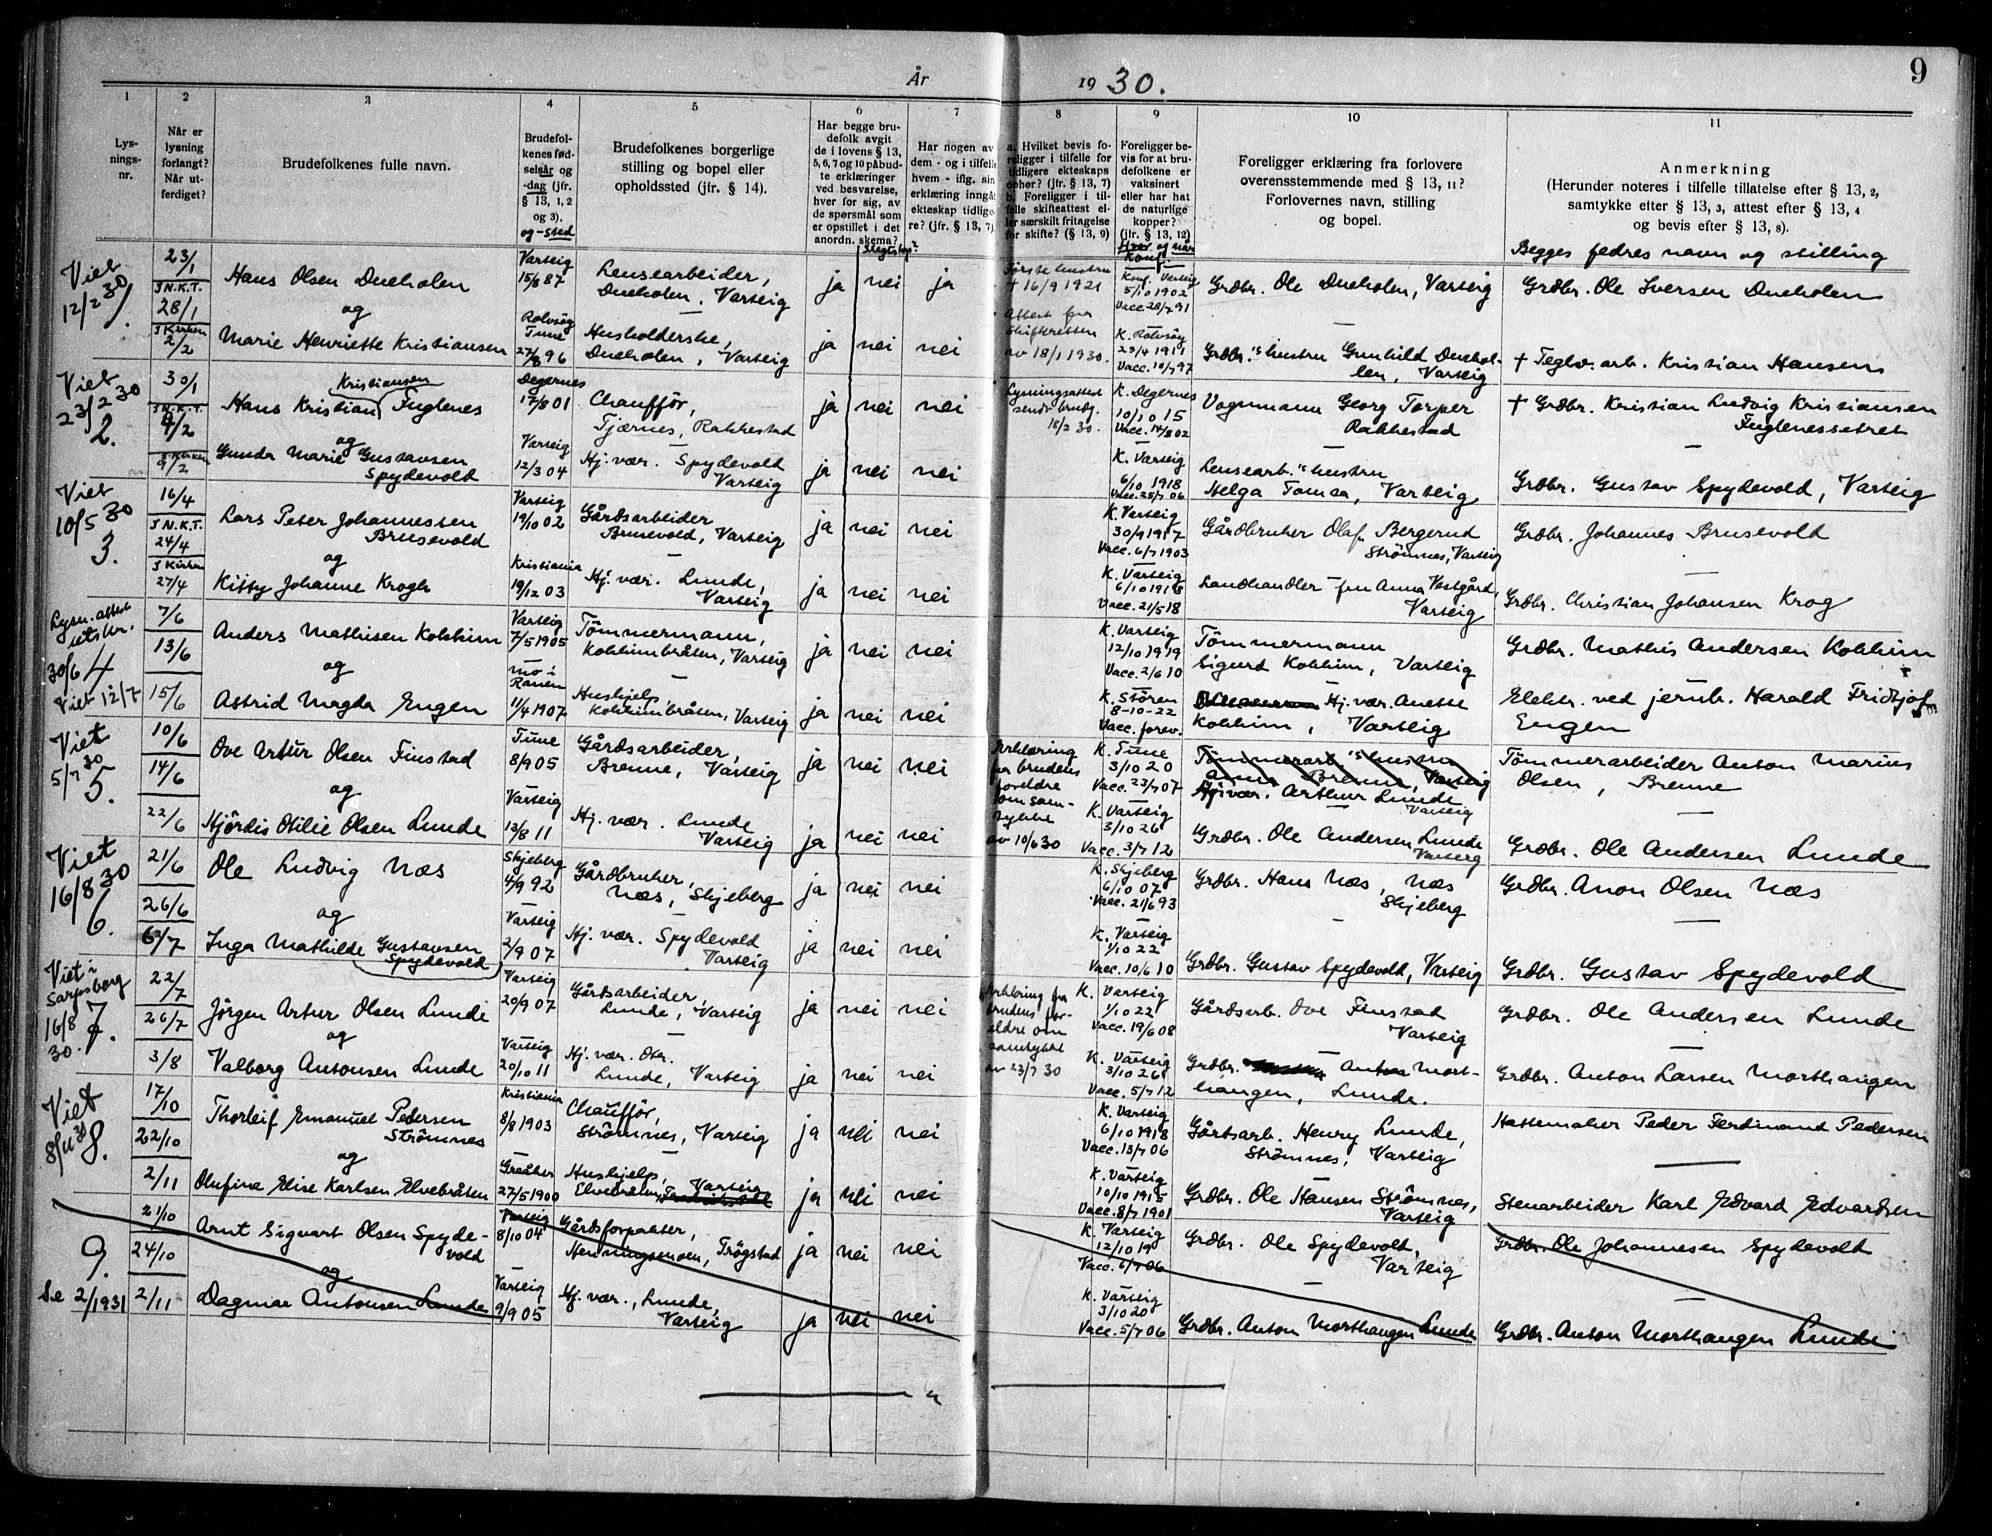 År 1930.
9
1
2
3
4
5
6
7
8
9
10
11
Lys-
nings-
nr.
Når er
lysning
forlangt?
Når ut-
ferdiget?
Brudefolkenes fulle navn.
Brudefol-
kenes fød-
selsår og
-dag (jfr.
§ 13, 1, 2
og 3).
og -sted
Brudefolkenes borgerlige
stilling og bopel eller
opholdssted (jfr. § 14).
Har begge bru-
defolk avgit
de i lovens § 13,
5, 6, 7 og 10 påbud-
te erklæringer
ved besvarelse,
hver for sig, av
de spørsmål som
er opstillet i det
anordn. skema?
Slegtskap?
Har nogen av
dem - og i tilfelle
hvem - iflg. sin
erklæring inngåt
ekteskap tidlige-
re? (jfr. § 13, 7)
a. Hvilket bevis fo-
religger i tilfelle for
tidligere ekteskaps
ophør? (jfr. § 13, 7)
b. Foreligger i til-
felle skifteattest el-
ler særskilt fritagelse
for skifte? (§ 13, 9)
Foreligger be-
vis for at bru-
defolkene er
vaksinert
eller har hat
de naturlige
kopper?
(jfr. § 13, 12)
Hvor og når
konf.
Foreligger erklæring fra forlovere
overensstemmende med § 13, 11?
Forlovernes navn, stilling
og bopel.
Anmerkning
(Herunder noteres i tilfelle tillatelse efter § 13, 2,
samtykke efter § 13, 3, attest efter § 13, 4
og bevis efter § 13, 8).
Begges fedres navn og stilling
Viet
12/2 30
1.
23/1
I N.K.T.
28/1
I Kirken
2/2
Hans Olsen Dueholen
og
Marie Henriette Kristiansen
Varteig
15/8 87
Rolvsøy
Tune
27/8 96
Lensearbeider,
Dueholen, Varteig
Husholderske,
Dueholen, Varteig
ja nei ja
ja nei nei
Første hustru
† 16/9 1921
Attest fra
Skifteretten
av 18/1 1930.
Konf. Varteig
5/10 1902
Vacc. 28/7 91
K. Rolvsøy
23/4 1911
Vacc. 10/7 97
Grdbr. Ole Dueholen, Varteig
Grdbr.'s hustru Gunhild Dueho-
len, Varteig
Grdbr. Ole Iversen Dueholen
† Teglv. arb. Kristian Hansen
Viet
23/2 30
2.
30/1
I N.K.T.
4/2
I Kirken
9/2
Kristiansen
Hans Kristian Fuglenes
og
Gunda Marie Gustavsen
Spydevold
Degernes
17/8 01
Varteig
12/3 04
Chauffør,
Tjærnes, Rakkestad
Hj. vær. Spydevold
Varteig
ja nei nei
ja nei nei
Lysningsattest
sendt brudg.
18/2 30.
K. Degernes
10/10 15
Vacc. 14/8 02
K. Varteig
6/10 1918
Vacc. 25/7 06
Vognmann Georg Torper
Rakkestad
Lensearb.'s hustru
Helga Tomta, Varteig
† Grdbr. Kristian Ludvig Kristiansen
Fuglenessetret
Grdbr. Gustav Spydevold, Varteig
Viet
10/5 30
3.
16/4
I N.K.T.
24/4
I Kirken
27/4
Lars Peter Johannessen
Brusevold
og
Kitty Johanne Krogh
Varteig
19/10 02
Kristiania
19/12 03
Gårdsarbeider
Brusevold, Varteig
Hj. vær. Lunde,
Varteig
ja nei nei
ja nei nei
K. Varteig
30/9 1917
Vacc. 6/7 1903
K. Varteig
6/10 1918
Vacc. 21/5 18
Gårdbruker Olaf Bergerud
Strömnes, Varteig
Landhandler-fru Anna Vestgård,
Varteig
Grdbr. Johannes Brusevold
Grdbr. Christian Johansen Krog
Lysn. attest
30/6
4
Viet 12/7
7/6
13/6
15/6
Anders Mathisen Kokkim
og
Astrid Magda Engen
Varteig
7/5 1905
Mo i
Ranen
11/4 1907
Tömmermann,
Kokkimbråten, Varteig
Hushjelp
Kokkimbråten, Varteig
ja nei nei
ja nei nei
K. Varteig
12/10 1919
Vacc. 2/6 10
K. Støren
8-10-22
Vacc. forev.
Tömmermann
Sigurd Kokkim, Varteig
Hj. vær. Anette
Kokkim, Varteig
Grdbr. Mathis Andersen Kokkim
Elektr. ved jernb. Harald Fridtjof
Engen
Viet
5/7 30
5.
10/6
14/6
22/6
Ove Artur Olsen Finstad
og
Hjördis Otilie Olsen Lunde
Tune
8/9 05
Varteig
13/8 11
Gårdsarbeider,
Brenne, Varteig
Hj. vær. Lunde
Varteig
ja nei nei
ja nei nei
Erklæring
fra brudens
foreldre
om sam-
tykke
av 10/6 30
K. Tune
3/10 20
Vacc. 23/7 07
K. Varteig
3/10 26
Vacc. 3/7 12
Tömmerarb.'s hustru
Anna Brenne, Varteig
Hj. vær. Arthur Lunde
Varteig
Grdbr. Ole Andersen Lunde
Varteig
Tömmerarbeider Anton Marius
Olsen, Brenne
Grdbr. Ole Andersen Lunde
Viet
16/8 30
6.
21/6
26/6
6/7
Ole Ludvig Næs
og
Inga Mathilde Gustavsen
Spydevold
Skjeberg
4/9 92
Varteig
2/9 07
Gårdbruker,
Næs, Skjeberg
Hj. vær. Spydevold
Varteig
ja nei nei
ja nei nei
K. Skjeberg
6/10 07
Vacc. 21/6 93
K. Varteig
1/10 22
Vacc. 10/6 10
Grdbr. Hans Næs, Næs
Skjeberg
Grdbr. Gustav Spydevold, Varteig
Grdbr. Anon Olsen Næs
Grdbr. Gustav Spydevold
Viet i
Sarpsborg
16/8
30.
7.
22/7
26/7
3/8
Jörgen Artur Olsen Lunde
og
Valborg Antonsen Lunde
Varteig
20/9 07
Varteig
20/10 11
Gårdsarbeider,
Lunde, Varteig
Hj. vær. dtr.
Lunde, Varteig
ja nei nei
ja nei nei
Erklæring fra
brudens for-
eldre om
samtykke
av 23/7 30
K. Varteig
1/10 22
Vacc. 19/6 08
K. Varteig
3/10 26
Vacc. 5/7 12
Gårdsarb. Ove Finstad
Varteig
Grdbr. Anton Mort-
haugen, Lunde.
Grdbr. Ole Andersen Lunde
Grdbr. Anton Larsen Morthaugen
Viet
8/11 30
8.
17/10
22/10
2/11
Thorleif Emanuel Pedersen
Strömnes
og
Olufine Elise Karlsen Elvebråten
Kristiania
8/8 1903
Greåker
27/5 1900
Chauffør,
Strömnes, Varteig
Hushjelp,
Elvebråten, Varteig
ja nei nei
ja nei nei
K. Varteig
6/10 1918
Vacc. 13/7 06
K. Varteig
10/10 1915
Vacc. 8/7 1901
Gårdsarb. Henry Lunde,
Strömnes, Varteig
Grdbr. Ole Hansen Strömnes,
Varteig
Hattemaker Peder Ferdinand Pedersen
Stenarbeider Karl Edvard Edvardsen
9.
Se 2/1931
21/10
24/10
2/11
Arnt Sigvart Olsen Spyde-
vold
og
Dagmar Antonsen Lunde
Varteig
8/10 04
Varteig
9/9 05
Gårdsforpakter,
Henningsmoen, Trögstad
Hj. vær., Lunde,
Varteig
ja nei nei
ja nei nei
K. Varteig
12/10 19
Vacc. 6/7 06
K. Varteig
3/10 20
Vacc. 5/7 06
Grdbr. Ole Spydevold,
Varteig
Grdbr. Anton Morthaugen Lunde
Grdbr. Ole Johannesen Spydevold
Grdbr. Anton Morthaugen Lunde